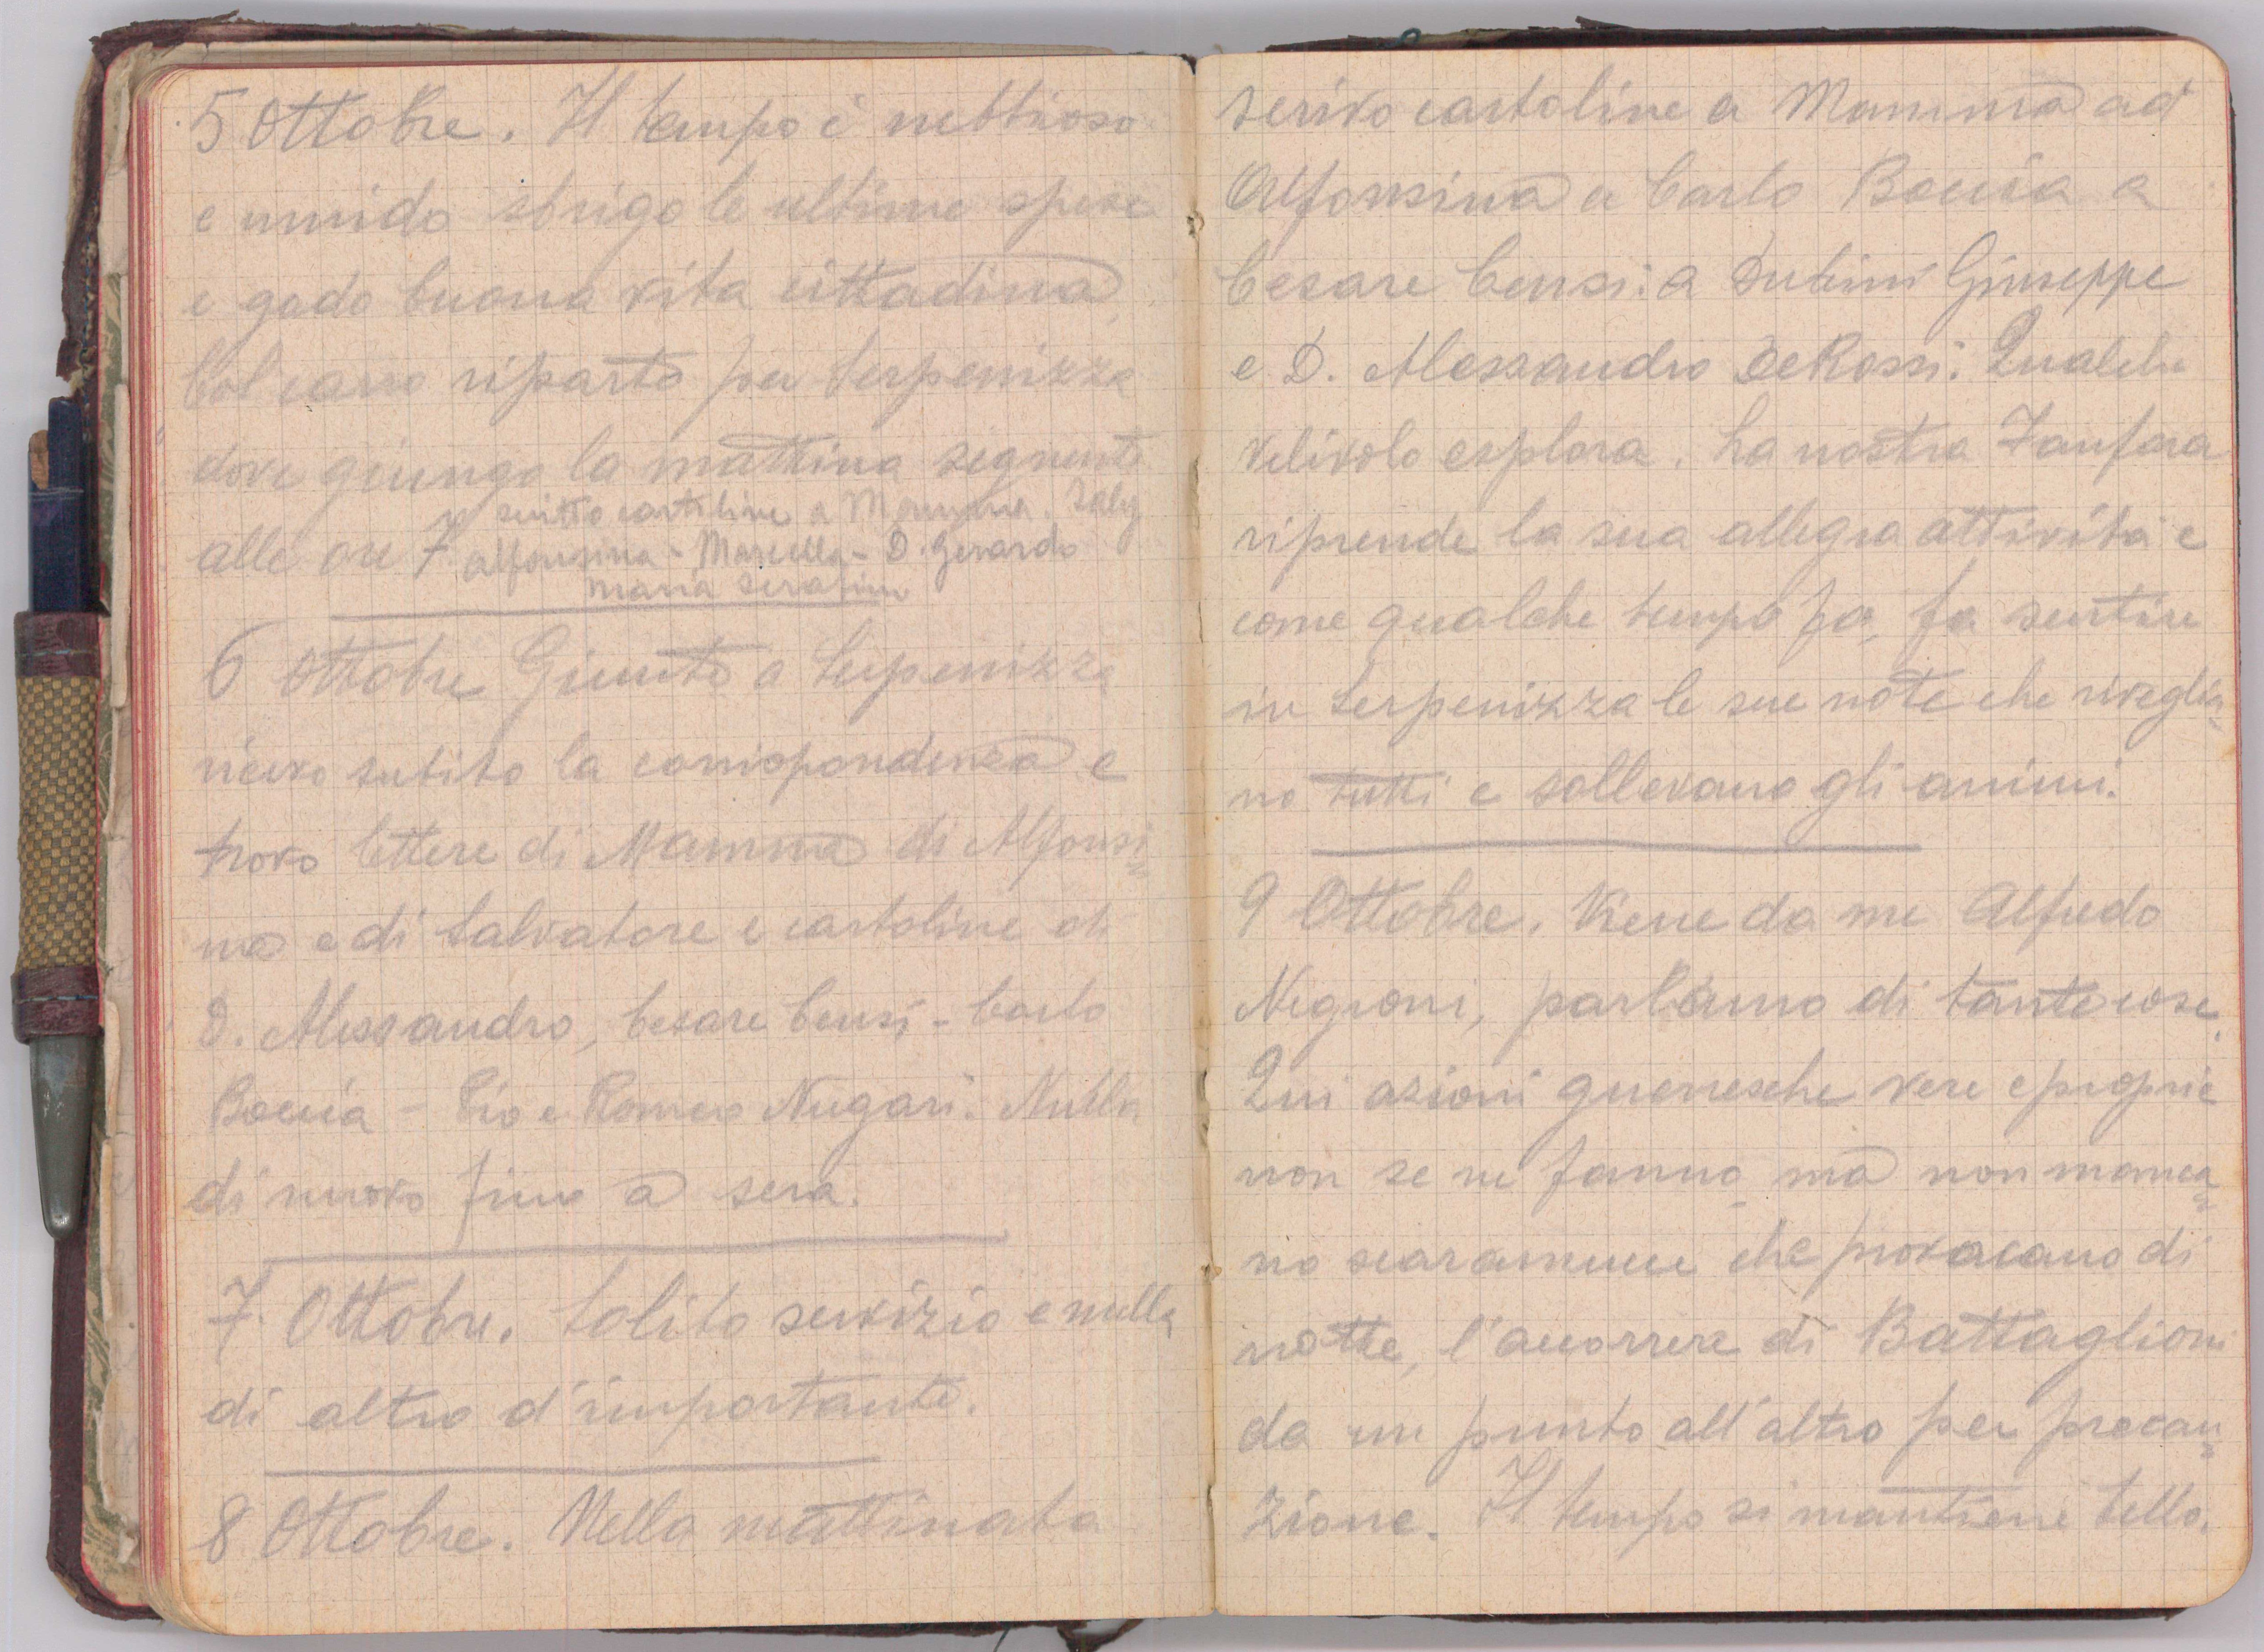 5 Ottobre. Il tempo è nebbioso
e umido sbrigo le ultime spese
e godo buona vita cittadina.
Col carro riparto per Serpenizza
dove giungo la mattina seguente
scritto cartoline a Mamma.
alle ore 7. Alfonsina - Marcella - D. Gerardo
Maria Serafini
6 Ottobre Giunto a Serpenizza
ricevo subito la corrispondenza e
trovo lettere di Mamma di Alfonsi=
na e di Salvatore e cartoline di
D. Alessandro, Cesare Censi - Carlo
Boccia - Pio e Romeo Nugari. Nulla
di nuovo fino a sera.
7. Ottobre. Solito servizio e nulla
di altro d'importante.
8 Ottobre. Nella mattinata
scrivo cartoline a Mamma ad
Alfonsina a Carlo Boccia a
Cesare Censi: a Giuseppe
e D. Alessandro De Rossi. Qualche
velivolo esplora. La nostra Fanfara
riprende la sua allegra attività e
come qualche tempo fa, fa sentire
in Serpenizza le sue note che riveglia=
no tutti e sollevano gli animi.
9 Ottobre. Viene da me Alfredo
Negroni, parliamo di tante cose.
Qui azioni guerresche vere e proprie
non se ne fanno ma non manca=
no scaramucce che provocano di
notte, l'accorrere di Battaglioni
da un punto all'altro per precau=
zione. Il tempo si mantiene bello.